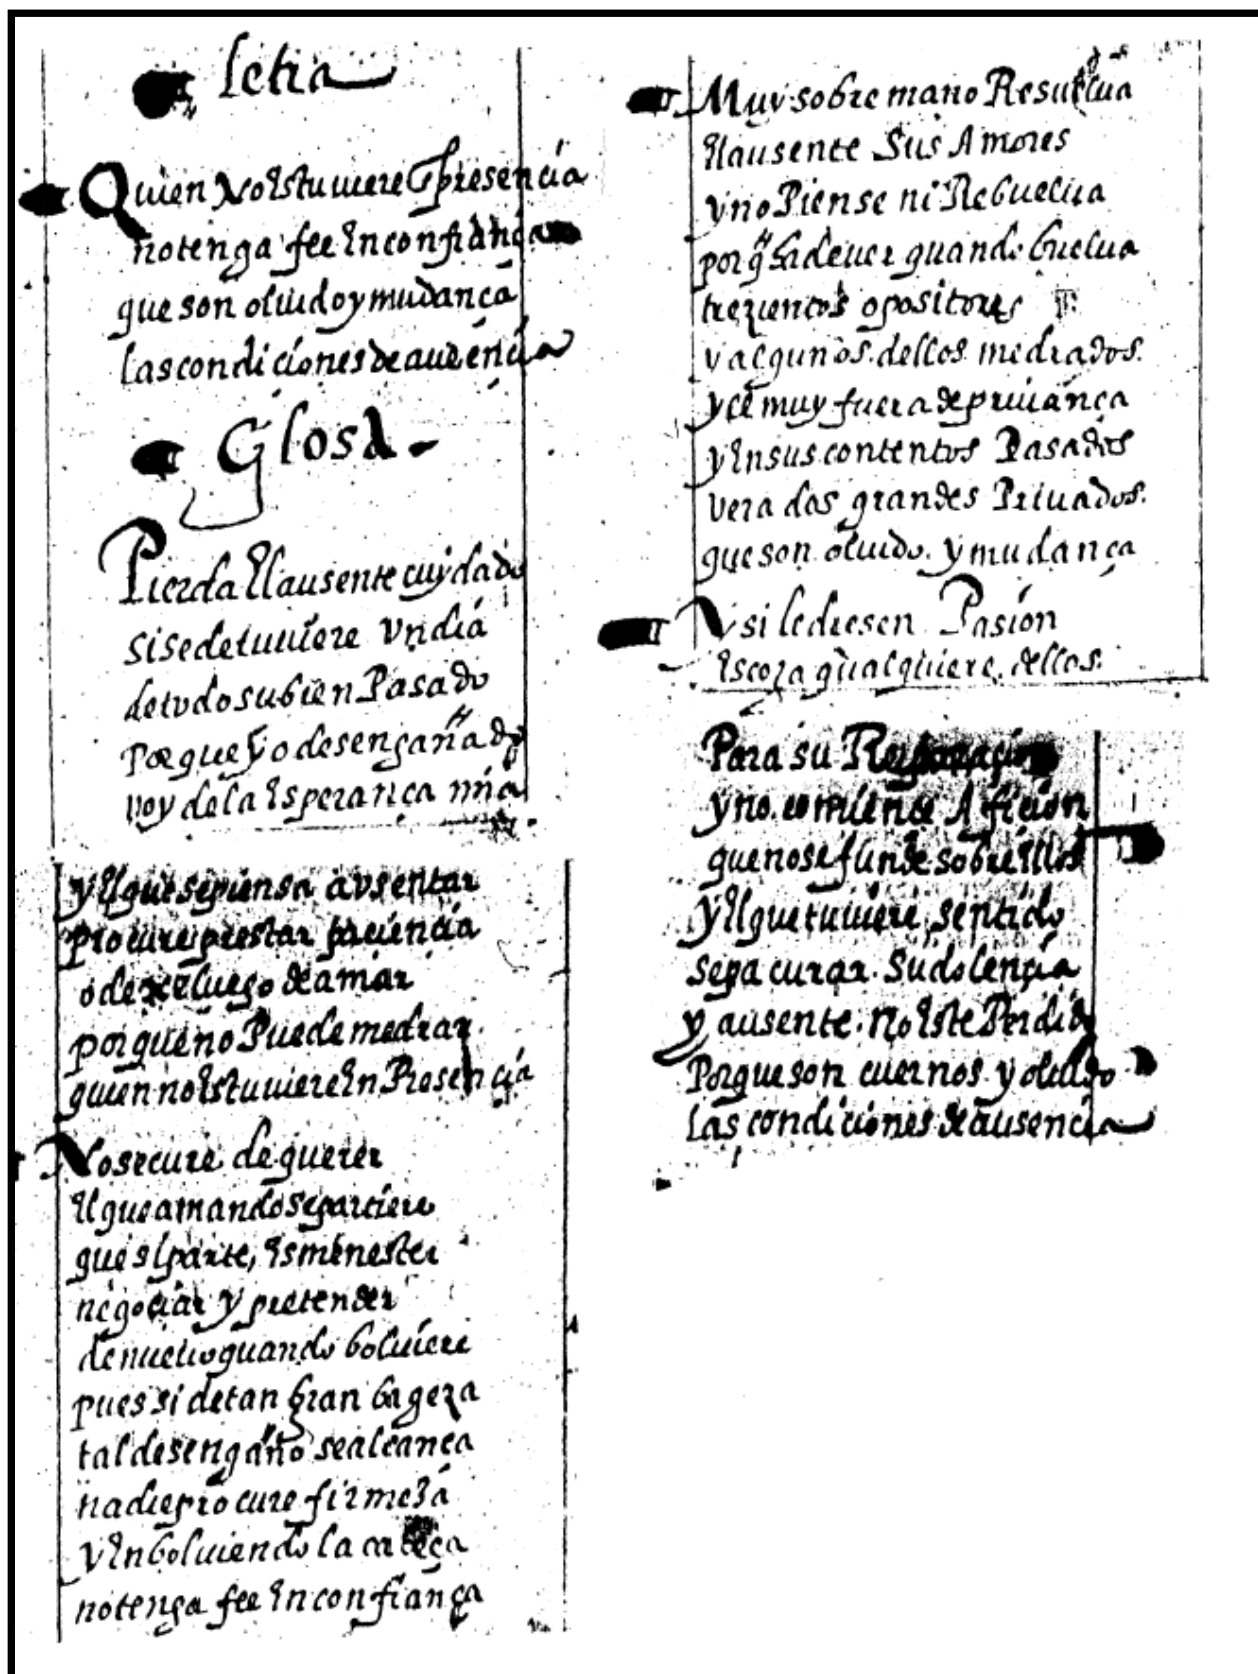 letra
Quien no estuuiere en presencia
no tenga fee en confiança
que son oluido y mudança
las condiciones de ausencia
Glosa
Pierda el ausente cuydado
si se detuuiere vn dia
de todo su bien Pasado
Porque yo desengañado
voy de la esperança mia
y el que se piensa avsentar
procure prestar paciencia
o dexe luego de amar
porque no Puede medrar
quien no estuuiere en Presencia
No se cure de querer
el que amando se partiere
que si parte, es menester
negociar y pretender
de nueuo quando boluiere
pues si de tan gran bageza
tal desengaño se alcança
nadie procure firmeza
y en boluiendo la cabeça
no tenga fee en confiança
Muy sobre mano Resuelua
el ausente Sus Amores
y no Piense ni Rebuelua
porq ha de uer quando buelua
trezientos opositores
y algunos dellos medrados
y el muy fuera de priuança
y en sus contentos Pasados
vera dos grandes Priuados
que son oluido y mudança
Y si le diesen Pasion
escoza qualquiere dellos
Para su
y no comience Aficion
que no se funde sobre ellos
Y el que tuuiere sentido
sepa curar su dolencia
y ausente no este Perdido
Porque son cuernos y oluido
las condiciones de ausencia